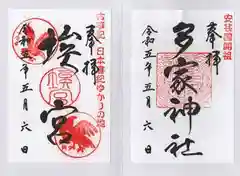 安芸国開祖
奉拝
多家神社
令和五年五月六日
古事記 日本書紀ゆかりの地
奉拝
埃宮
令和五年五月六日